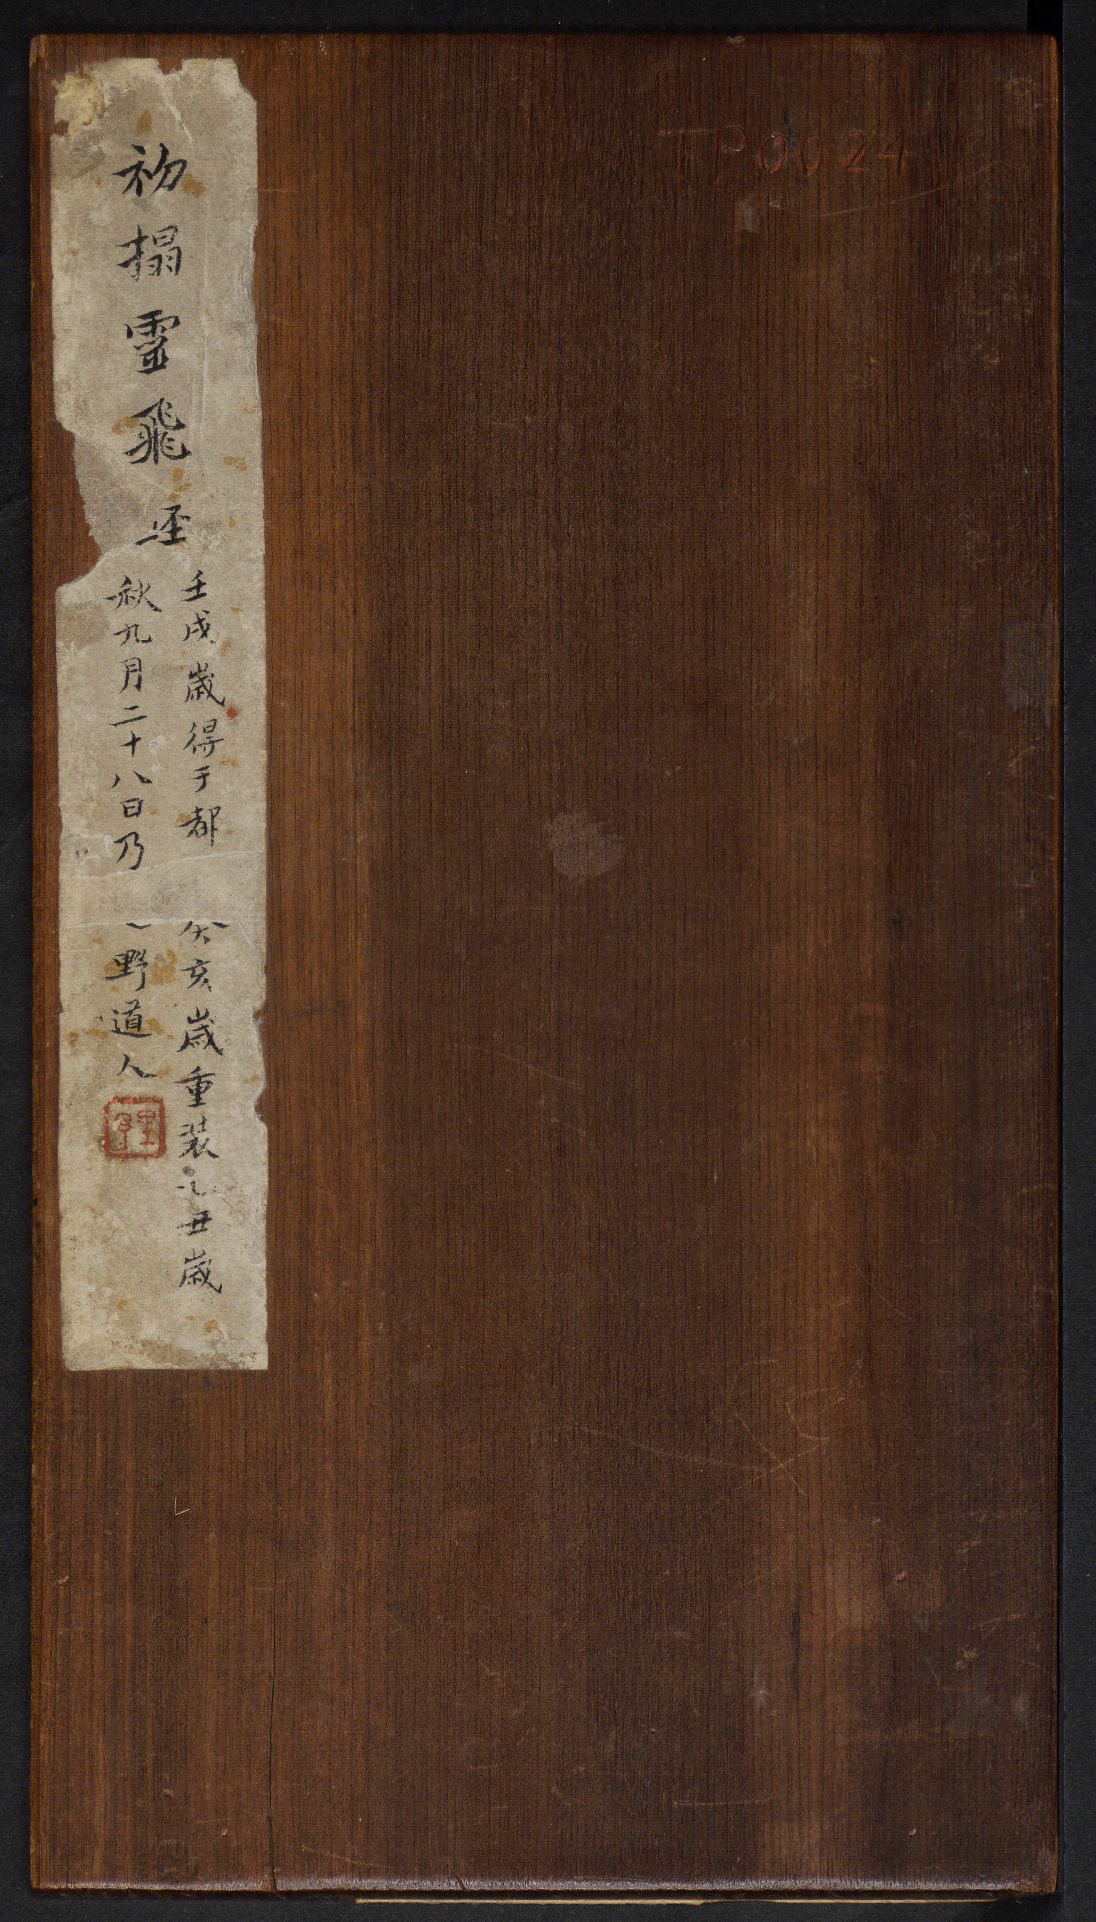 初搨靈飛
壬戌歲得于都
秋九月二十八日乃
癸亥歲重装乙丑歲
野道人
TP0024